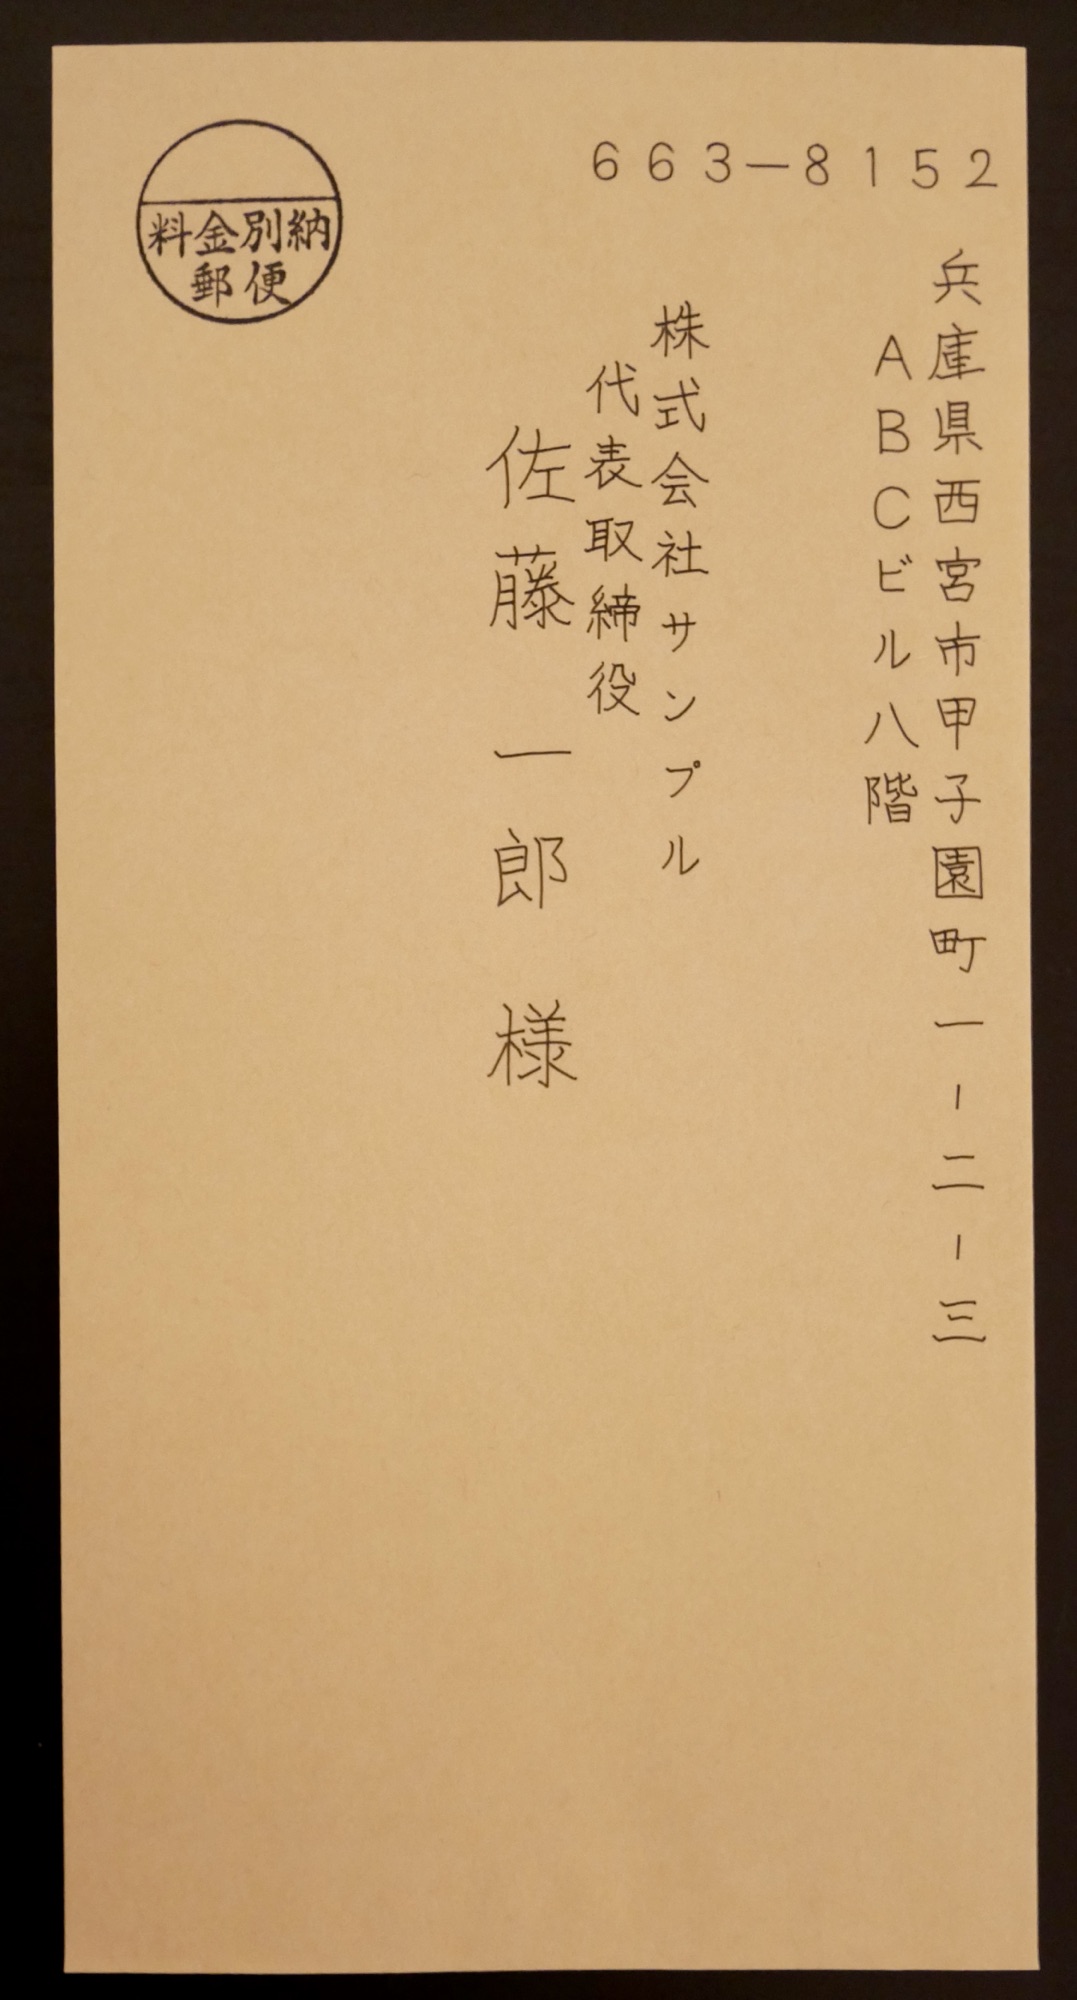 663-8152
兵庫県西宮市甲子園町一-二-三
ABCビル八階
株式会社サンプル
代表取締役
佐藤 一郎 様
料金別納
郵便